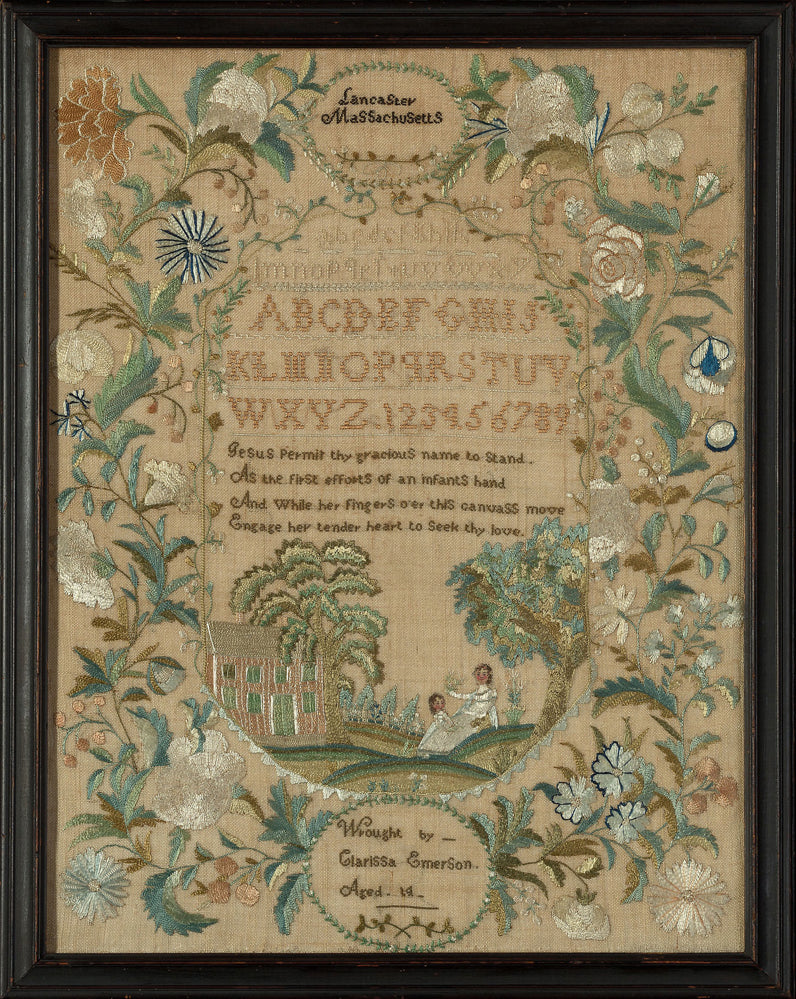 Lancaster
Massachusetts
lmnopqrstuvwxyz
ABCDEFGHIJ
KLMNOPQRSTUV
WXYZ.123456789
Jesus Permit thy gracious name to Stand.
As the first efforts of an infants hand
And While her fingers o'er this canvass move
Engage her tender heart to Seek thy love.
Wrought by —
Clarissa Emerson.
Aged. 14 -